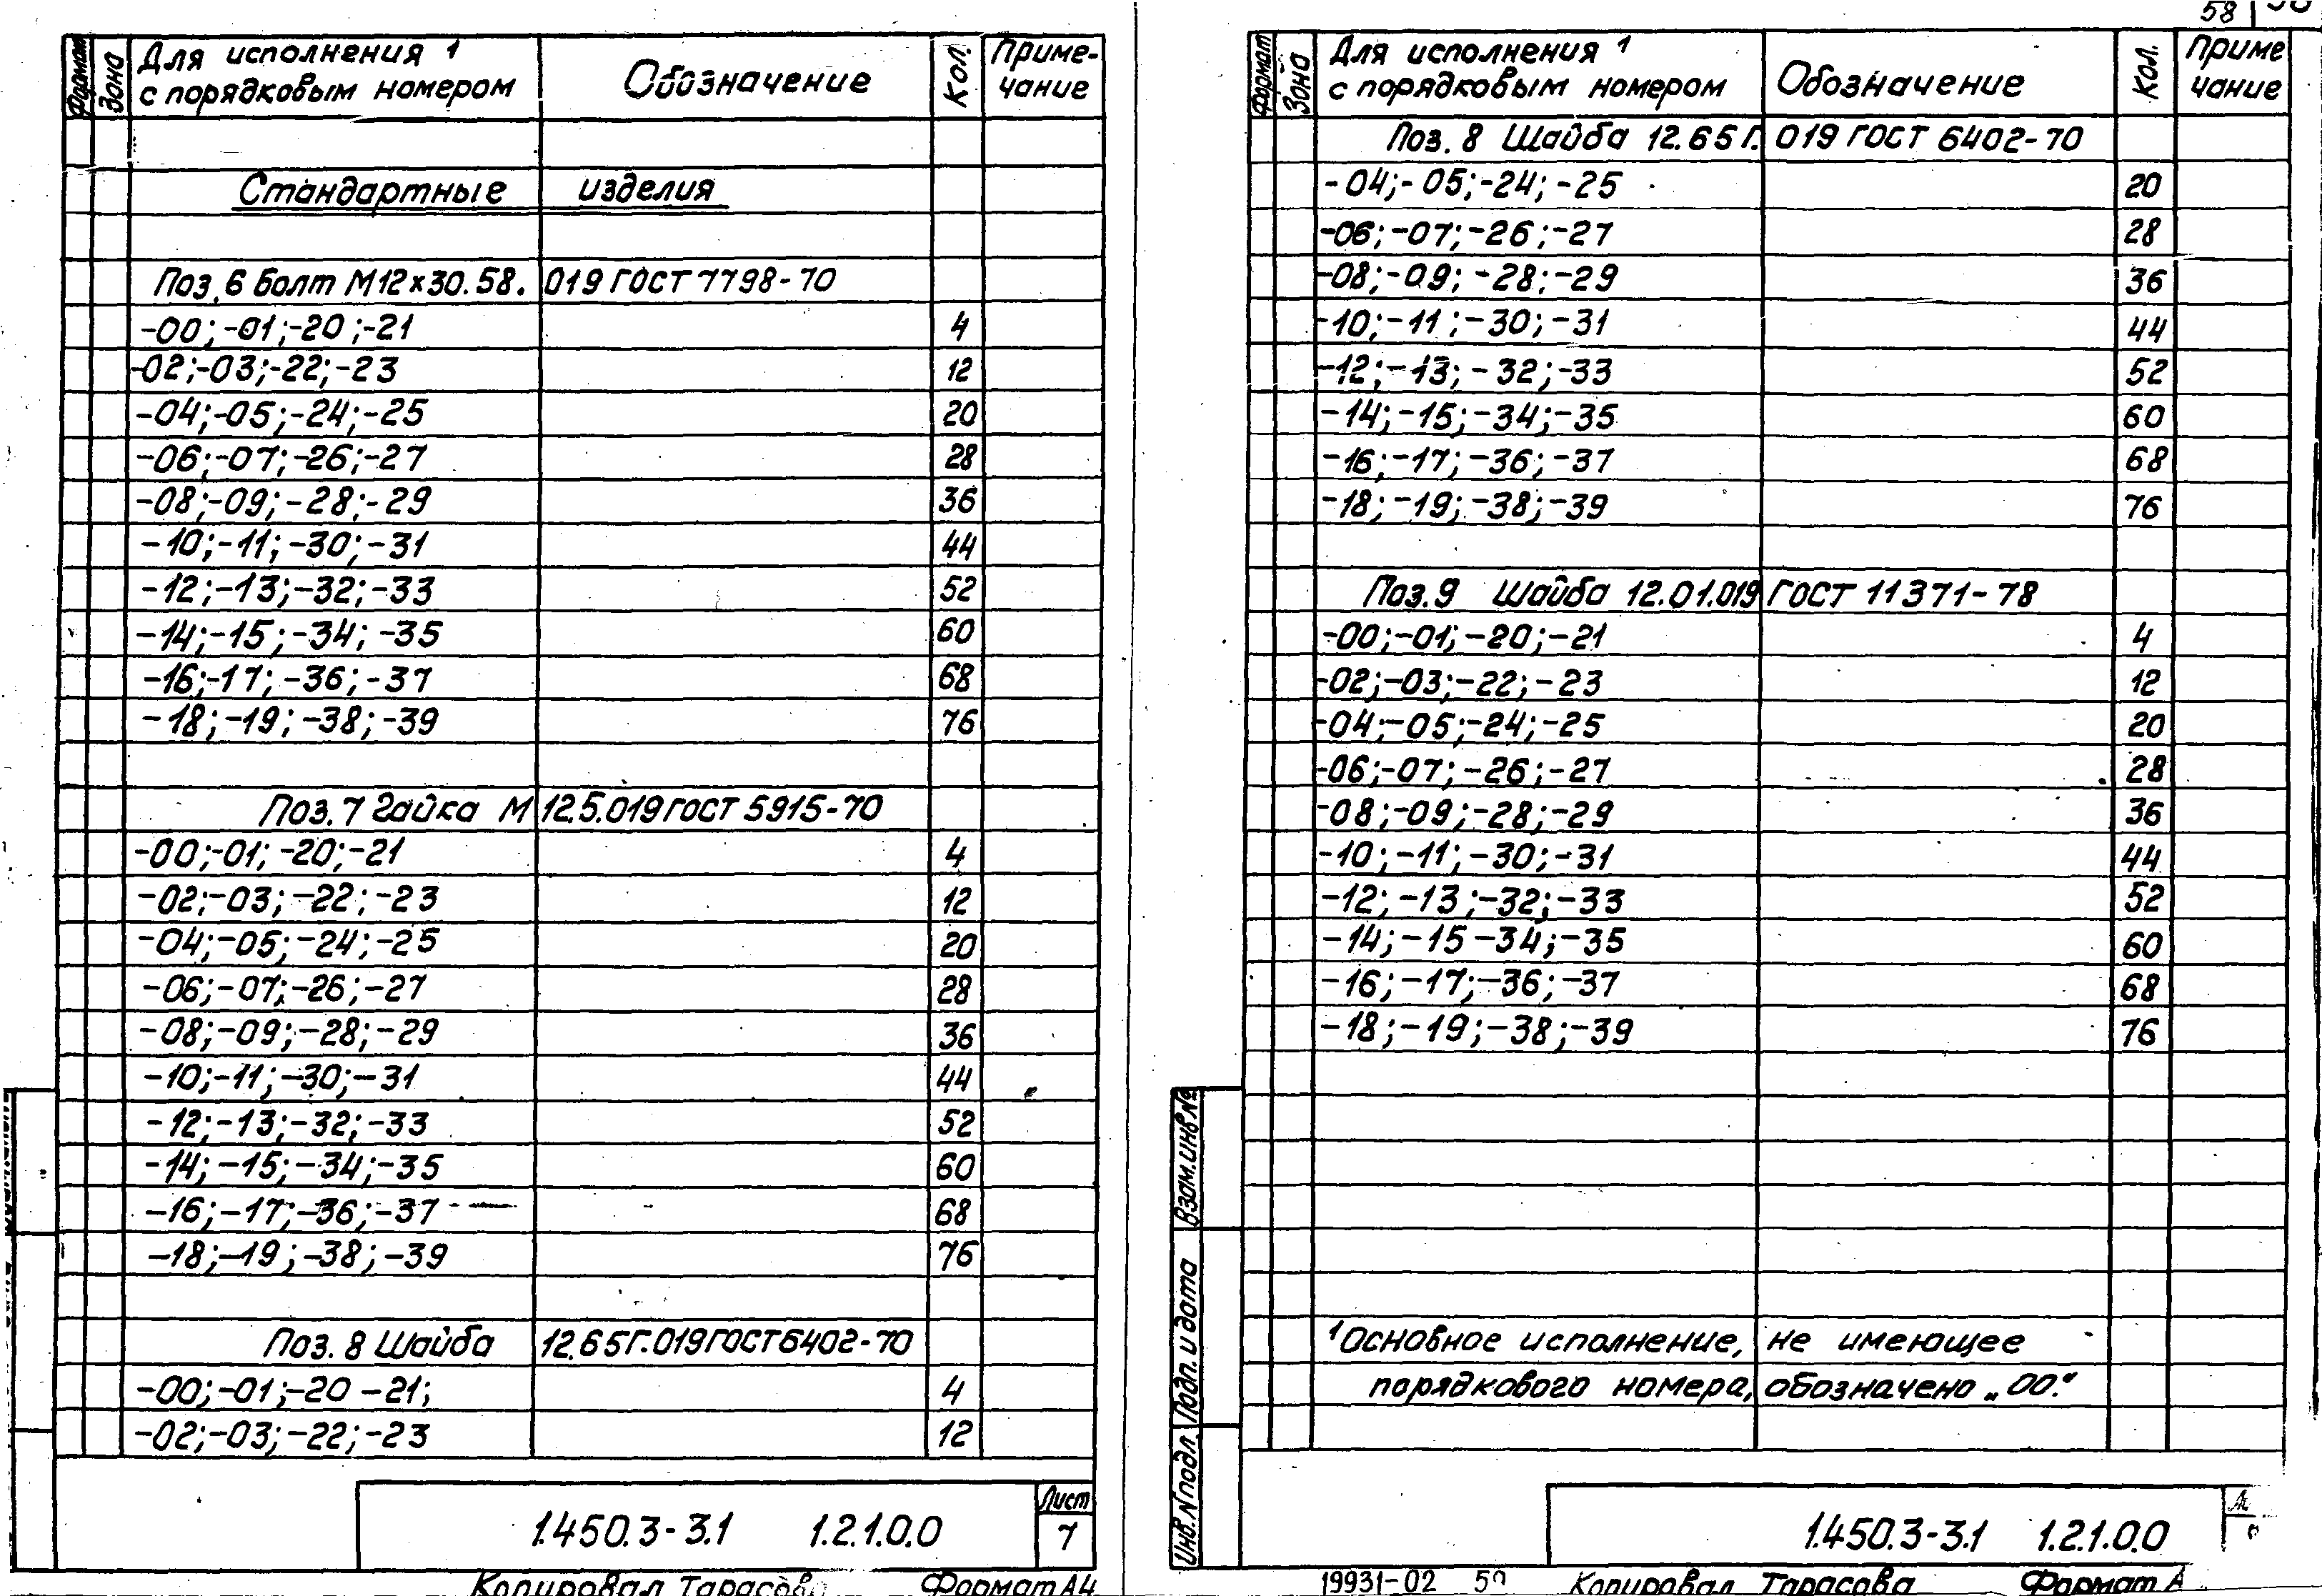 Формат
Зона
Для исполнения 1
с порядковым номером
Обозначение
Кол.
Приме-
чание
Стандартные изделия
Поз. 6 Болт М12×30.58. 019 ГОСТ 7798-70
-00; -01; -20; -21 4
-02; -03; -22; -23 12
-04; -05; -24; -25 20
-06; -07; -26; -27 28
-08; -09; -28; -29 36
-10; -11; -30; -31 44
-12; -13; -32; -33 52
-14; -15; -34; -35 60
-16; -17; -36; -37 68
-18; -19; -38; -39 76
Поз. 7 Гайка М 12.5.019 ГОСТ 5915-70
-00; -01; -20; -21 4
-02; -03; -22; -23 12
-04; -05; -24; -25 20
-06; -07; -26; -27 28
-08; -09; -28; -29 36
-10; -11; -30; -31 44
-12; -13; -32; -33 52
-14; -15; -34; -35 60
-16; -17; -36; -37 68
-18; -19; -38; -39 76
Поз. 8 Шайба 12.65Г.019 ГОСТ 6402-70
-00; -01; -20 -21; 4
-02; -03; -22; -23 12
1.450.3-3.1 1.2.1.0.0
Лист
7
Копировал Тарасова Формат А4
58
Формат
Зона
Для исполнения 1
с порядковым номером
Обозначение
Кол.
Приме
чание
Поз. 8 Шайба 12.65Г. 019 ГОСТ 6402-70
-04; -05; -24; -25 20
-06; -07; -26; -27 28
-08; -09; -28; -29 36
-10; -11; -30; -31 44
-12; -13; -32; -33 52
-14; -15; -34; -35 60
-16; -17; -36; -37 68
-18; -19; -38; -39 76
Поз. 9 Шайба 12.01.019 ГОСТ 11371-78
-00; -01; -20; -21 4
-02; -03; -22; -23 12
-04; -05; -24; -25 20
-06; -07; -26; -27 28
-08; -09; -28; -29 36
-10; -11; -30; -31 44
-12; -13; -32; -33 52
-14; -15 -34; -35 60
-16; -17; -36; -37 68
-18; -19; -38; -39 76
1 Основное исполнение, не имеющее
порядкового номера, обозначено „00."
Взам.инв.№
Подп. и дата
Инв.№ подл.
1.450.3-3.1 1.2.1.0.0
19931-02 Копировал Тарасова Формат А